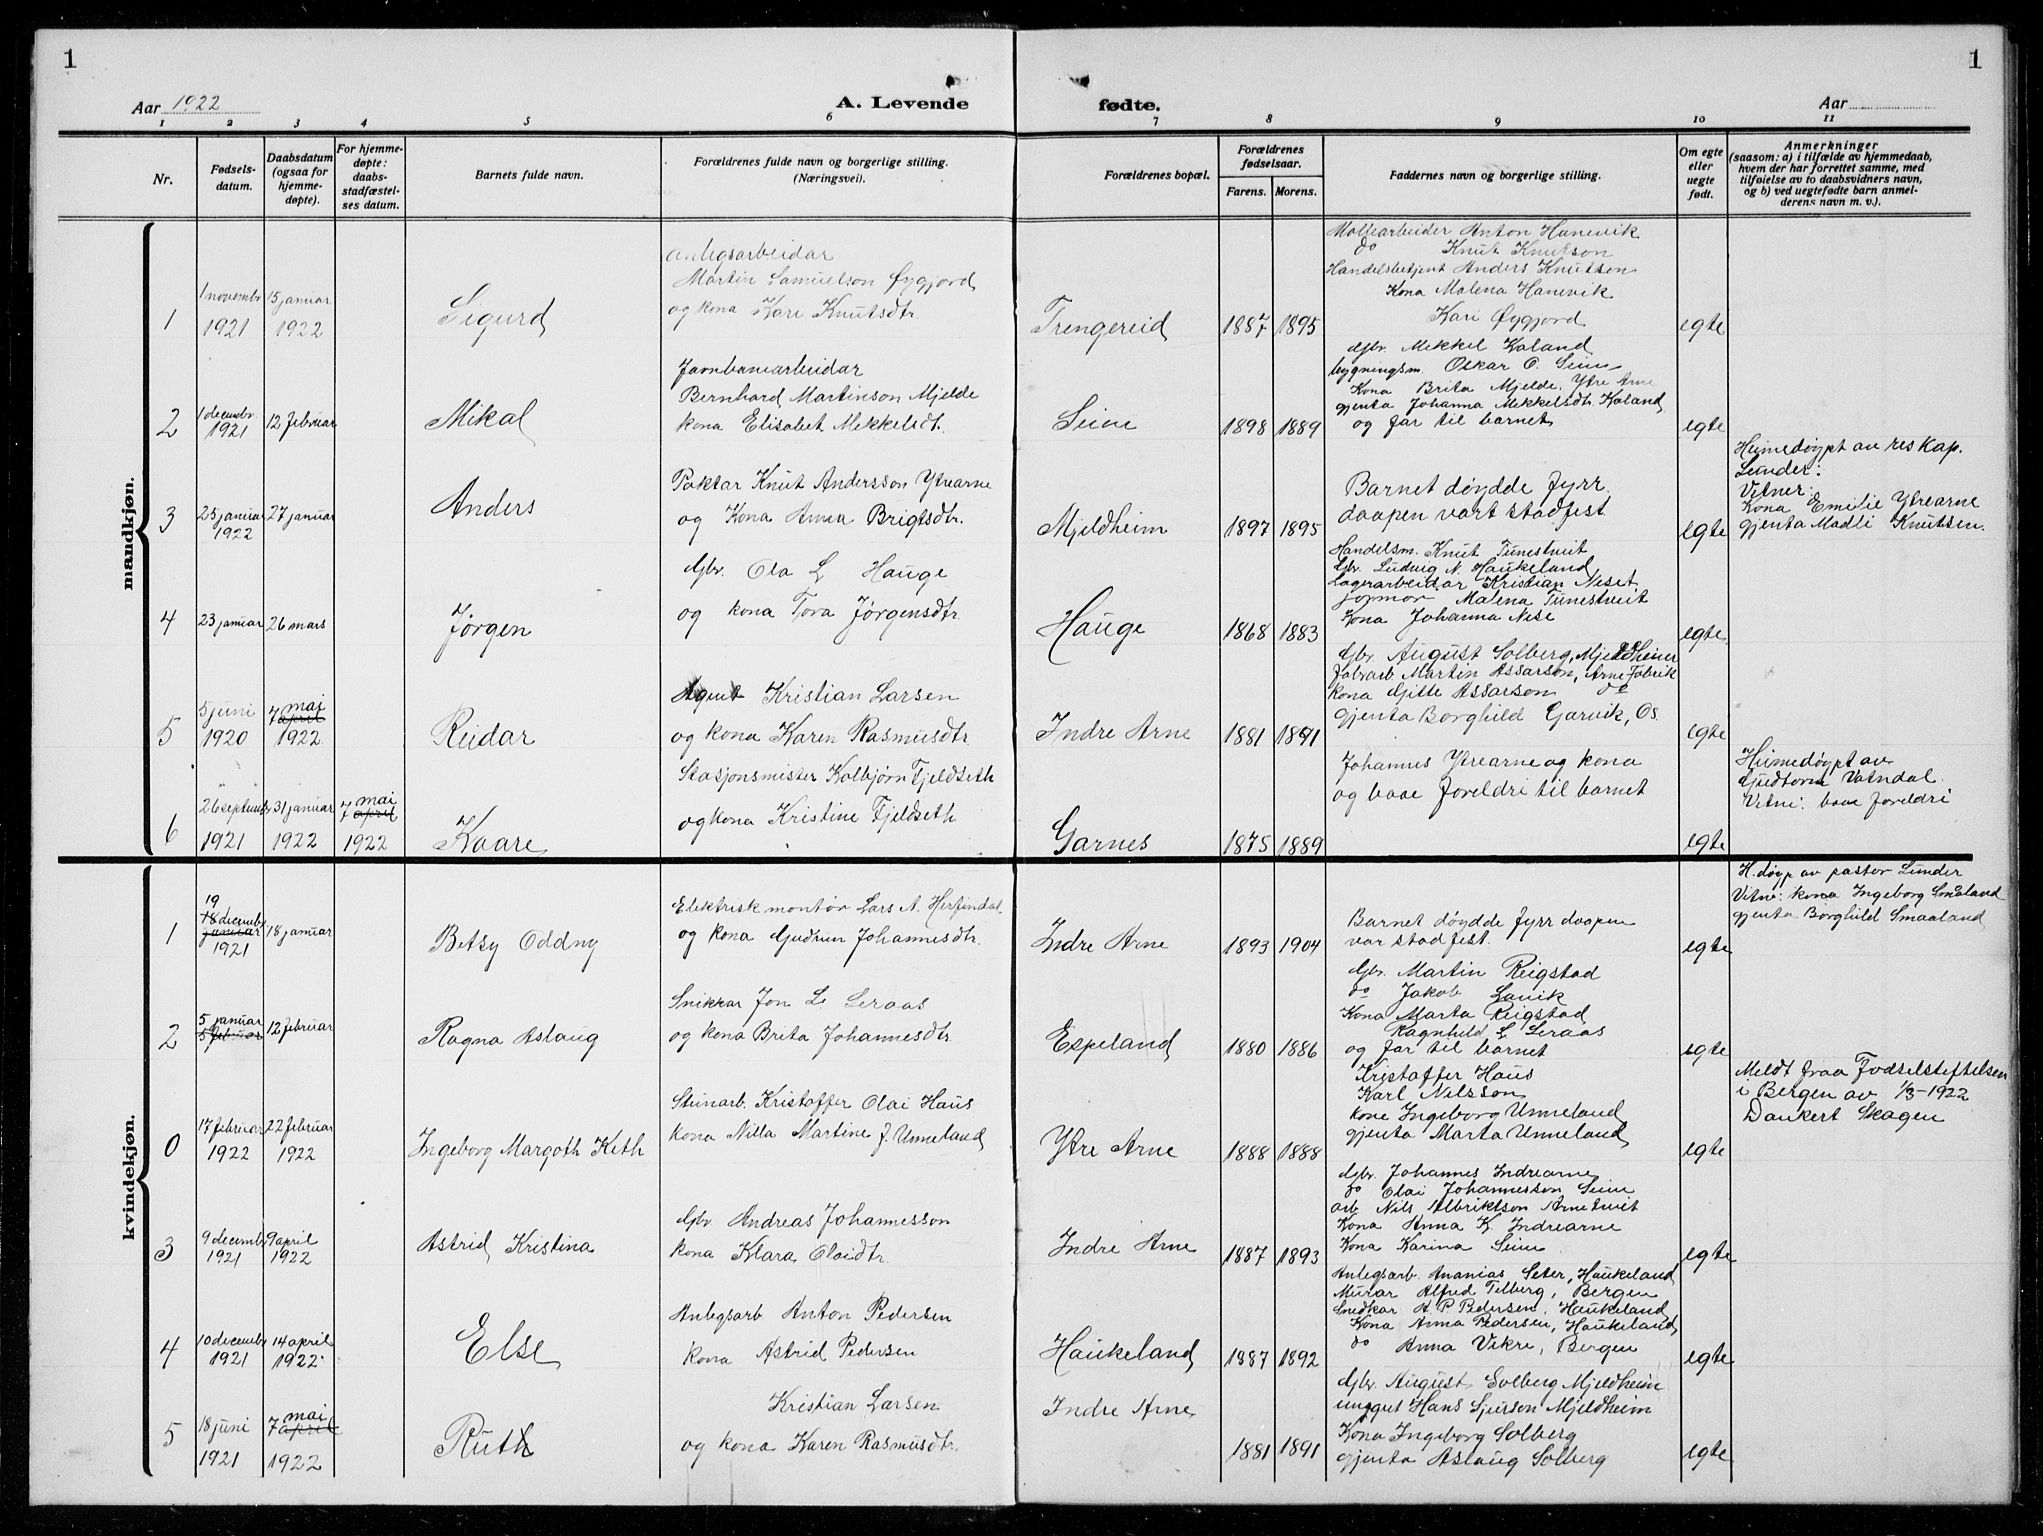 1
1
Aar 1922
A. Levende fødte.
Aar
1 2 3 4 5 6 7 8 9 10 11
Nr.
Fødsels-
datum.
Daabsdatum
(ogsaa for
hjemme-
døpte).
For hjemme-
døpte:
daabs-
stadfæstel-
ses datum.
Barnets fulde navn.
Forældrenes fulde navn og borgerlige stilling.
(Næringsvei).
Forældrenes bopæl.
Forældrenes
fødselsaar.
Farens. Morens.
Faddernes navn og borgerlige stilling.
Om egte
eller
uegte
født.
Anmerkninger
(saasom: a) i tilfælde av hjemmedaab,
hvem der har forrettet samme, med
tilføielse av to daabsvidners navn,
og b) ved uegtefødte barn anmel-
derens navn m. v.).
mandkjøn.
1
1 novembr
1921
15 januar
1922
Sigurd
Anlegsarbeidar
Martin Samuelson Øygjord
og kona Kari Knutsdtr
Trengereid
1887 1895
Anton Hanevik
do Knut Knutson
Handelsbetjent Anders Knutson
Kona Malena Hanevik
Kari Øygjord
egte
2
1 decembr.
1921
12 februar
Mikal
Jarnbanearbeidar
Bernhard Martinson Mjelde
kona Elisabet Mekkelsdt.
Seim
1898 1889
Gbr. Mekkel Kaland
bygningsm. Oskar O. Seim
Kona Brita Mjelde. Ytre Arne
gjenta Johanna Mekkelsdtr. Kaland
og far til barnet
egte
3
25 januar
1922
27 januar
Anders
Paktar Knut Andersson Ytrearne
og Kona Anna Brigtsdtr.
Mjeldheim
1897 1895
Barnet døydde fyrr
daapen vart stadfest
egte
Heimedøypt av res kap.
Lunder:
Vitner:
Kona Emilie Ytrearne
gjenta Madli Knutsen.
4
23 januar
26 mars
Jørgen
Gbr. Ola L Hauge
og kona Tora Jørgensdtr
Hauge
1868 1883
Handelsm. Knut Tunestveit
Gbr. Ludvig N. Haukeland
Lagerarbeidar Kristian Neset
jormor Malena Tunestveit
Kona Johanna Nese
egte
5
5 juni
1920
7 mai
april
1922
Reidar
Agent Kristian Larsen
og kona Karen Rasmusdtr
Indre Arne
1881 1891
Gbr August Solberg, Mjeldheim
Fabrarb Martin Assarson, Arne Fabrik
kona Gitte Assarson do
gjenta Borghild Garvik, Os
egte
6
26 septembr
1921
31 januar
1922
7 mai
april
1922
Kaare
Stasjonsmister Kolbjørn Fjeldseth
og kona Kristine Fjeldseth
Garnes
1875 1889
Johannes Ytrearne og kona
og baae foreldri til barnet
egte
Heimedøypt av
Gudtorm Vatndal
Vitni: baae foreldri
kvindekjøn.
1
19
18 decembr
januar
1921
18 januar
Betsy Oddny
Elektrisk montør Lars A. Herfindal
og kona Gudrun Johannesdtr.
Indre Arne
1893 1904
Barnet døydde fyrr daapen
var stadfest.
egte
H.døyp av pastor Lunder
Vitne: kona Ingeborg Smaaland
gjenta Borghild Smaaland
2
5 januar
5 februar
12 februar
Ragna Aslaug
Snikkar Jon L. Leraas
og kona Brita Johannesdtr.
Espeland
1880 1886
Gbr. Martin Reigstad
do Jakob Lavik
Kona Marta Reigstad
Ragnhild L. Leraas
og far til barnet
egte
0
17 februar
1922
22 februar
1922
Ingeborg Margoth Keth
Steinarb. Kristoffer Olai Haus
kona Nilla Martine f. Unneland
Ytre Arne
1888 1888
Kristoffer Haus
Karl Nilsson
kone Ingeborg Unneland
gjenta Marta Unneland
egte
Meldt fraa Fødselstiftelsen
i Bergen av 1/3-1922
Dankert Skagen
3
9 decembr
1921
9 april
1922
Astrid Kristina
Gbr Andreas Johannesson
kona Klara Olaidtr.
Indre Arne
1887 1893
Gbr. Johannes Indrearne
do Olai Johannesson Seim
arb Nils Albriktson Arnetveit
Kona Anna K. Indrearne
Kona Karina Seim
egte
4
10 decembr
1921
14 april
1922
Else
Anlegsarb Anton Pedersen
kona Astrid Pedersen
Haukeland
1887 1892
Anlegsarb. Ananias Seter, Haukeland
Murar Alfred Tilberg, Bergen
Snedkar A. P Pedersen, Haukeland
Kona Anna Pedersen, Haukeland
do Anna Vikre, Bergen
egte
5
18 juni
1921
7 mai
april
1922
Ruth
Kristian Larsen
og kona Karen Rasmusdtr.
Indre Arne
1881 1891
Gbr. August Solberg Mjeldheim
ungut Hans Sjurson Mjeldheim
Kona Ingeborg Solberg
gjenta Aslaug Solberg
egte